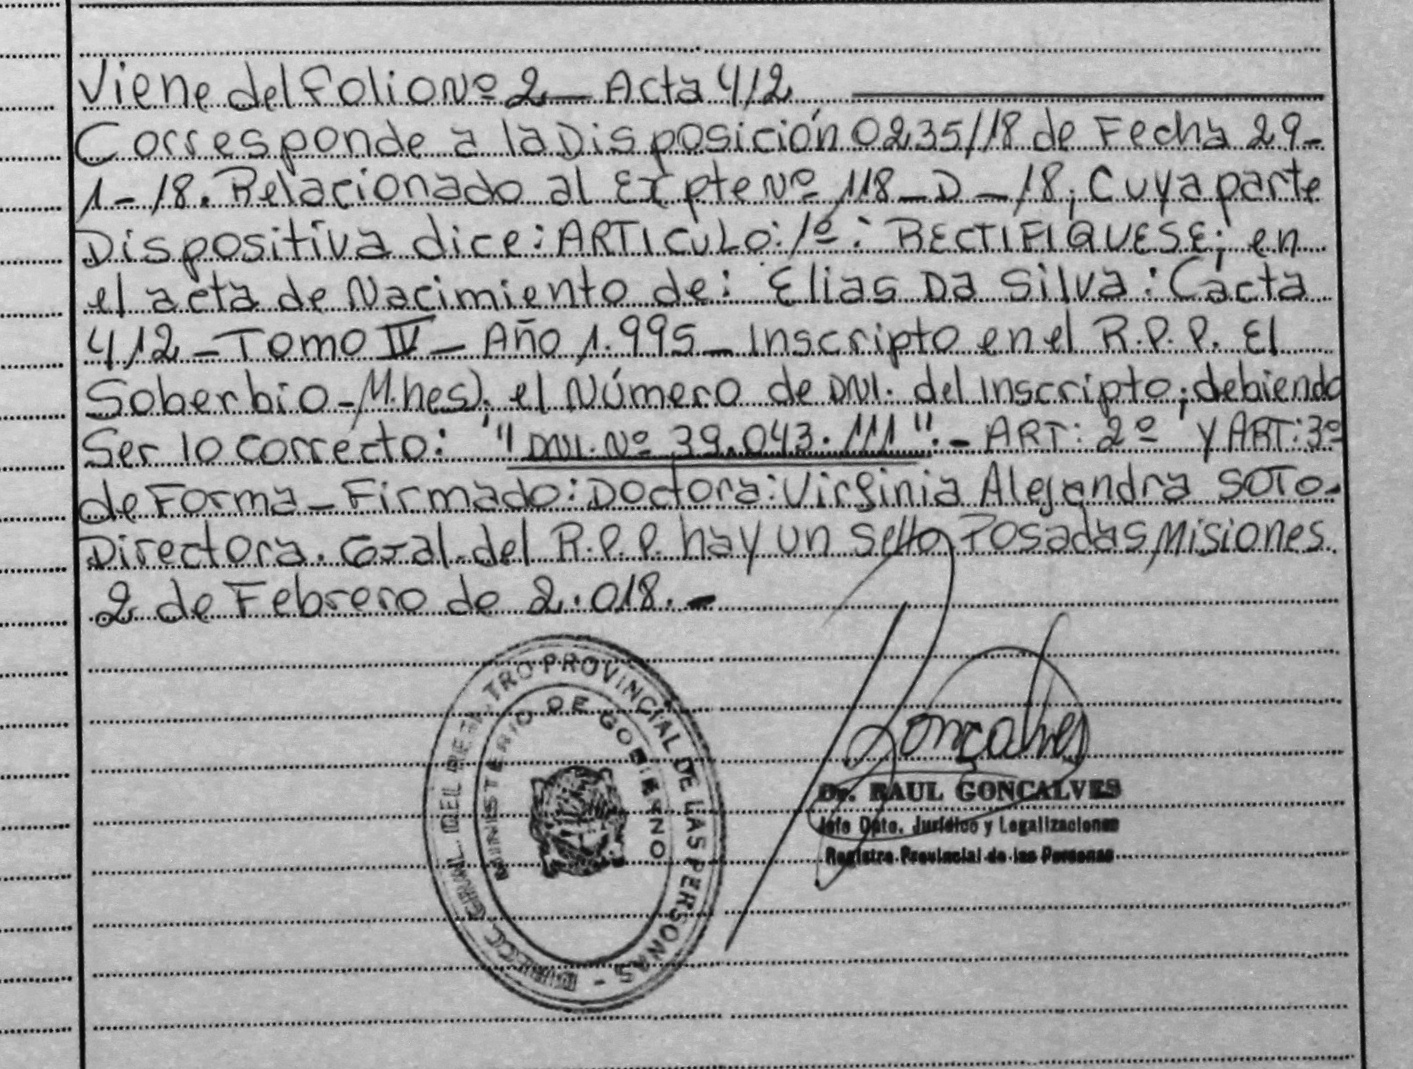 Viene del Folio Nº 2 — Acta 412
Corresponde a la Disposición 0235/18 de Fecha 29-
1-18. Relacionado al Expte Nº 118-D-18; Cuya parte
Dispositiva dice: ARTICULO: 1º: RECTIFIQUESE; en
el acta de Nacimiento de: Elias Da Silva: (acta
412 - Tomo IV - Año 1.995 - Inscripto en el R.P.P. El
Soberbio - M.nes); el Número de DNI. del Inscripto; debiendo
Ser lo correcto: "DNI. Nº 39.043.111". - ART: 2º Y ART: 3º
de Forma - Firmado: Doctora: Virginia Alejandra SOTO-
Directora. Gral. del R.P.P. hay un Sello Posadas Misiones
2 de Febrero de 2.018. -
TRO PROVINCIAL DE LAS PERSONAS -
MINISTERIO DE GOBIERNO
Gonçalves
Dr. RAUL GONCALVES
Jefe Dpto. Jurídico y Legalizaciones
Registro Provincial de las Personas